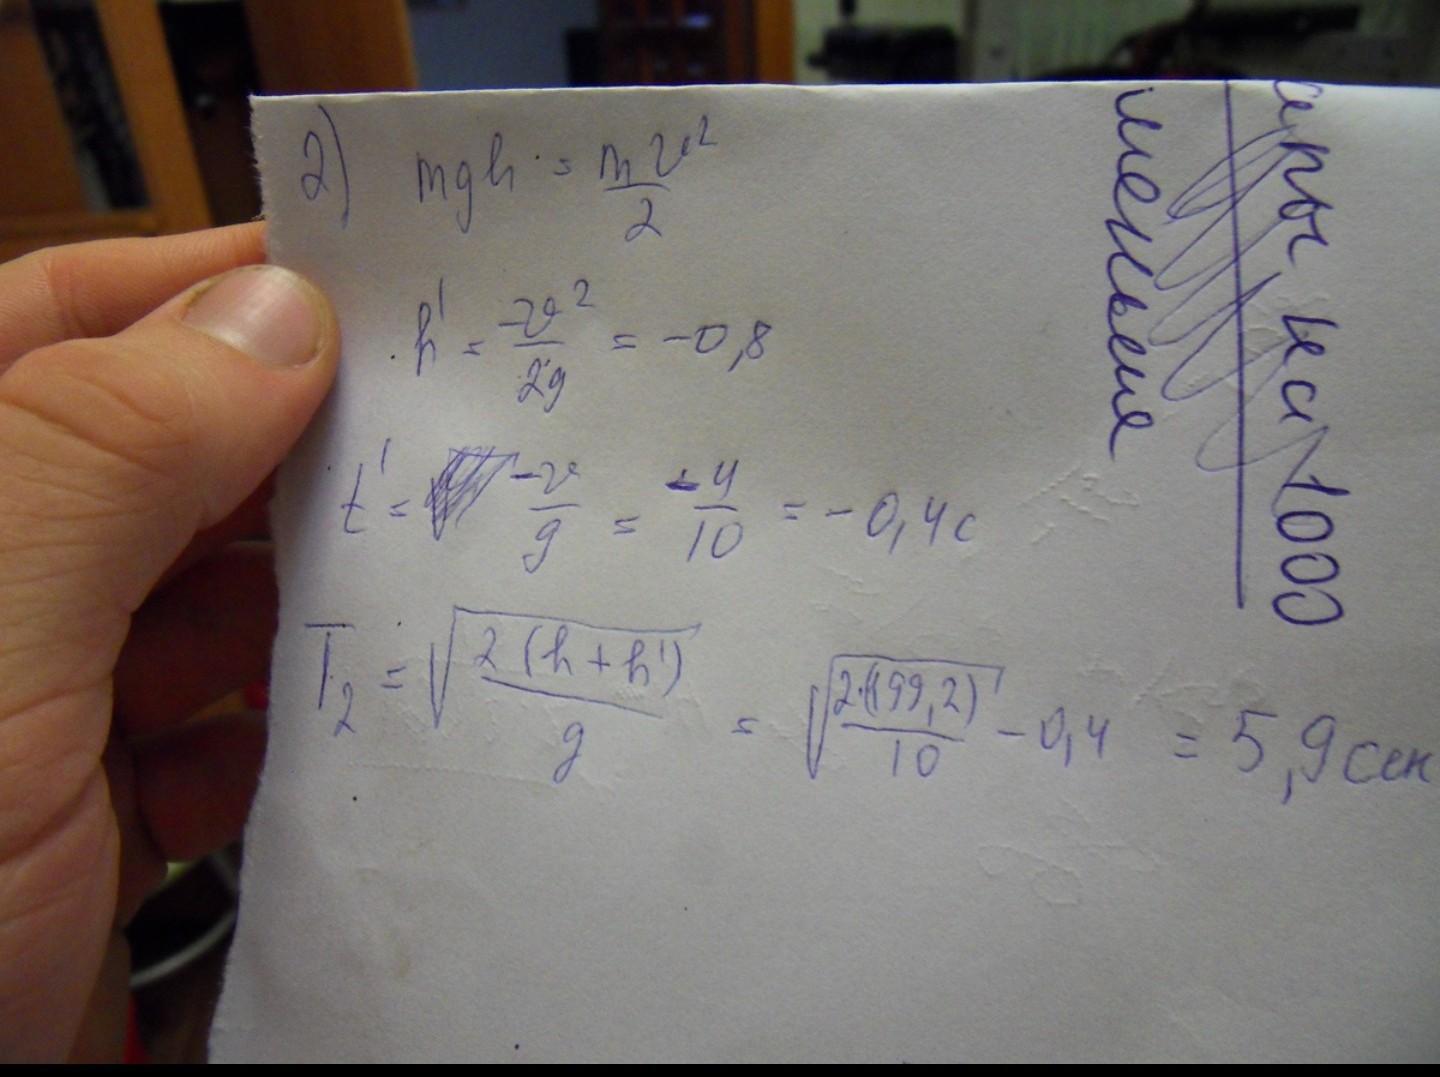 2) mgh = mv²/2
h' = -v²/2g = -0,8
t' = -v/g = -4/10 = -0,4с
T₂ = √(2(h+h')/g) = √(2·(199,2)/10) - 0,4 = 5,9 сек
на 1000
меньше